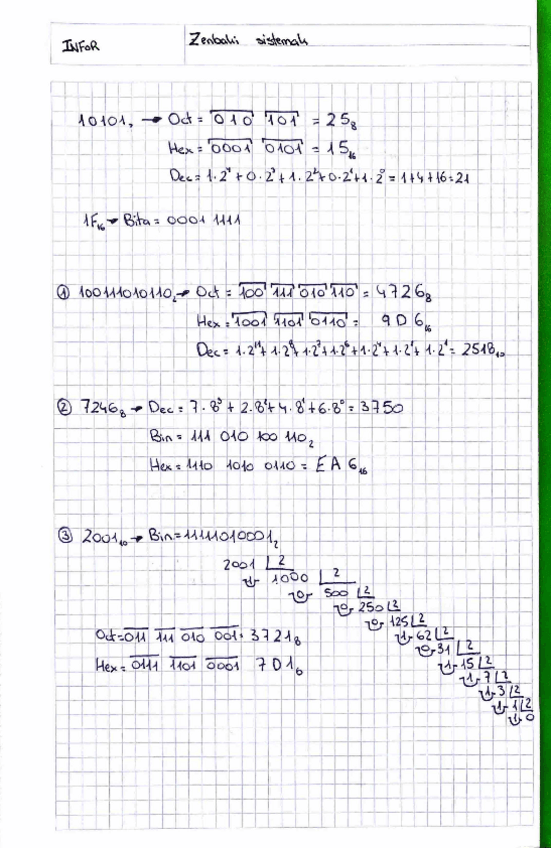 INFOR
Zenbaki sistemak
10101₂ → Oct = 010 101 = 25₈
Hex = 0001 0101 = 15₁₆
Dec = 1·2⁴ + 0·2³ + 1·2² + 0·2¹ + 1·2⁰ = 1+4+16=21
1F₁₆ → Bita = 0001 1111
① 100111010110₂ → Oct = 100 111 010 110 = 4726₈
Hex = 1001 1101 0110 = 9D6₁₆
Dec = 1·2¹¹ + 1·2⁸ + 1·2⁷ + 1·2⁶ + 1·2⁴ + 1·2² + 1·2¹ = 2518₁₀
② 7246₈ → Dec = 7·8³ + 2·8² + 4·8¹ + 6·8⁰ = 3750
Bin = 111 010 100 110₂
Hex = 1110 1010 0110 = EA6₁₆
③ 2001₁₀ → Bin = 11111010001₂
2001 2
1 1000 2
0 500 2
0 250 2
0 125 2
1 62 2
Oct = 011 111 010 001 = 3721₈
0 31 2
1 15 2
Hex = 0111 1101 0001 7D1₆
1 7 2
1 3 2
1 1 2
1 0